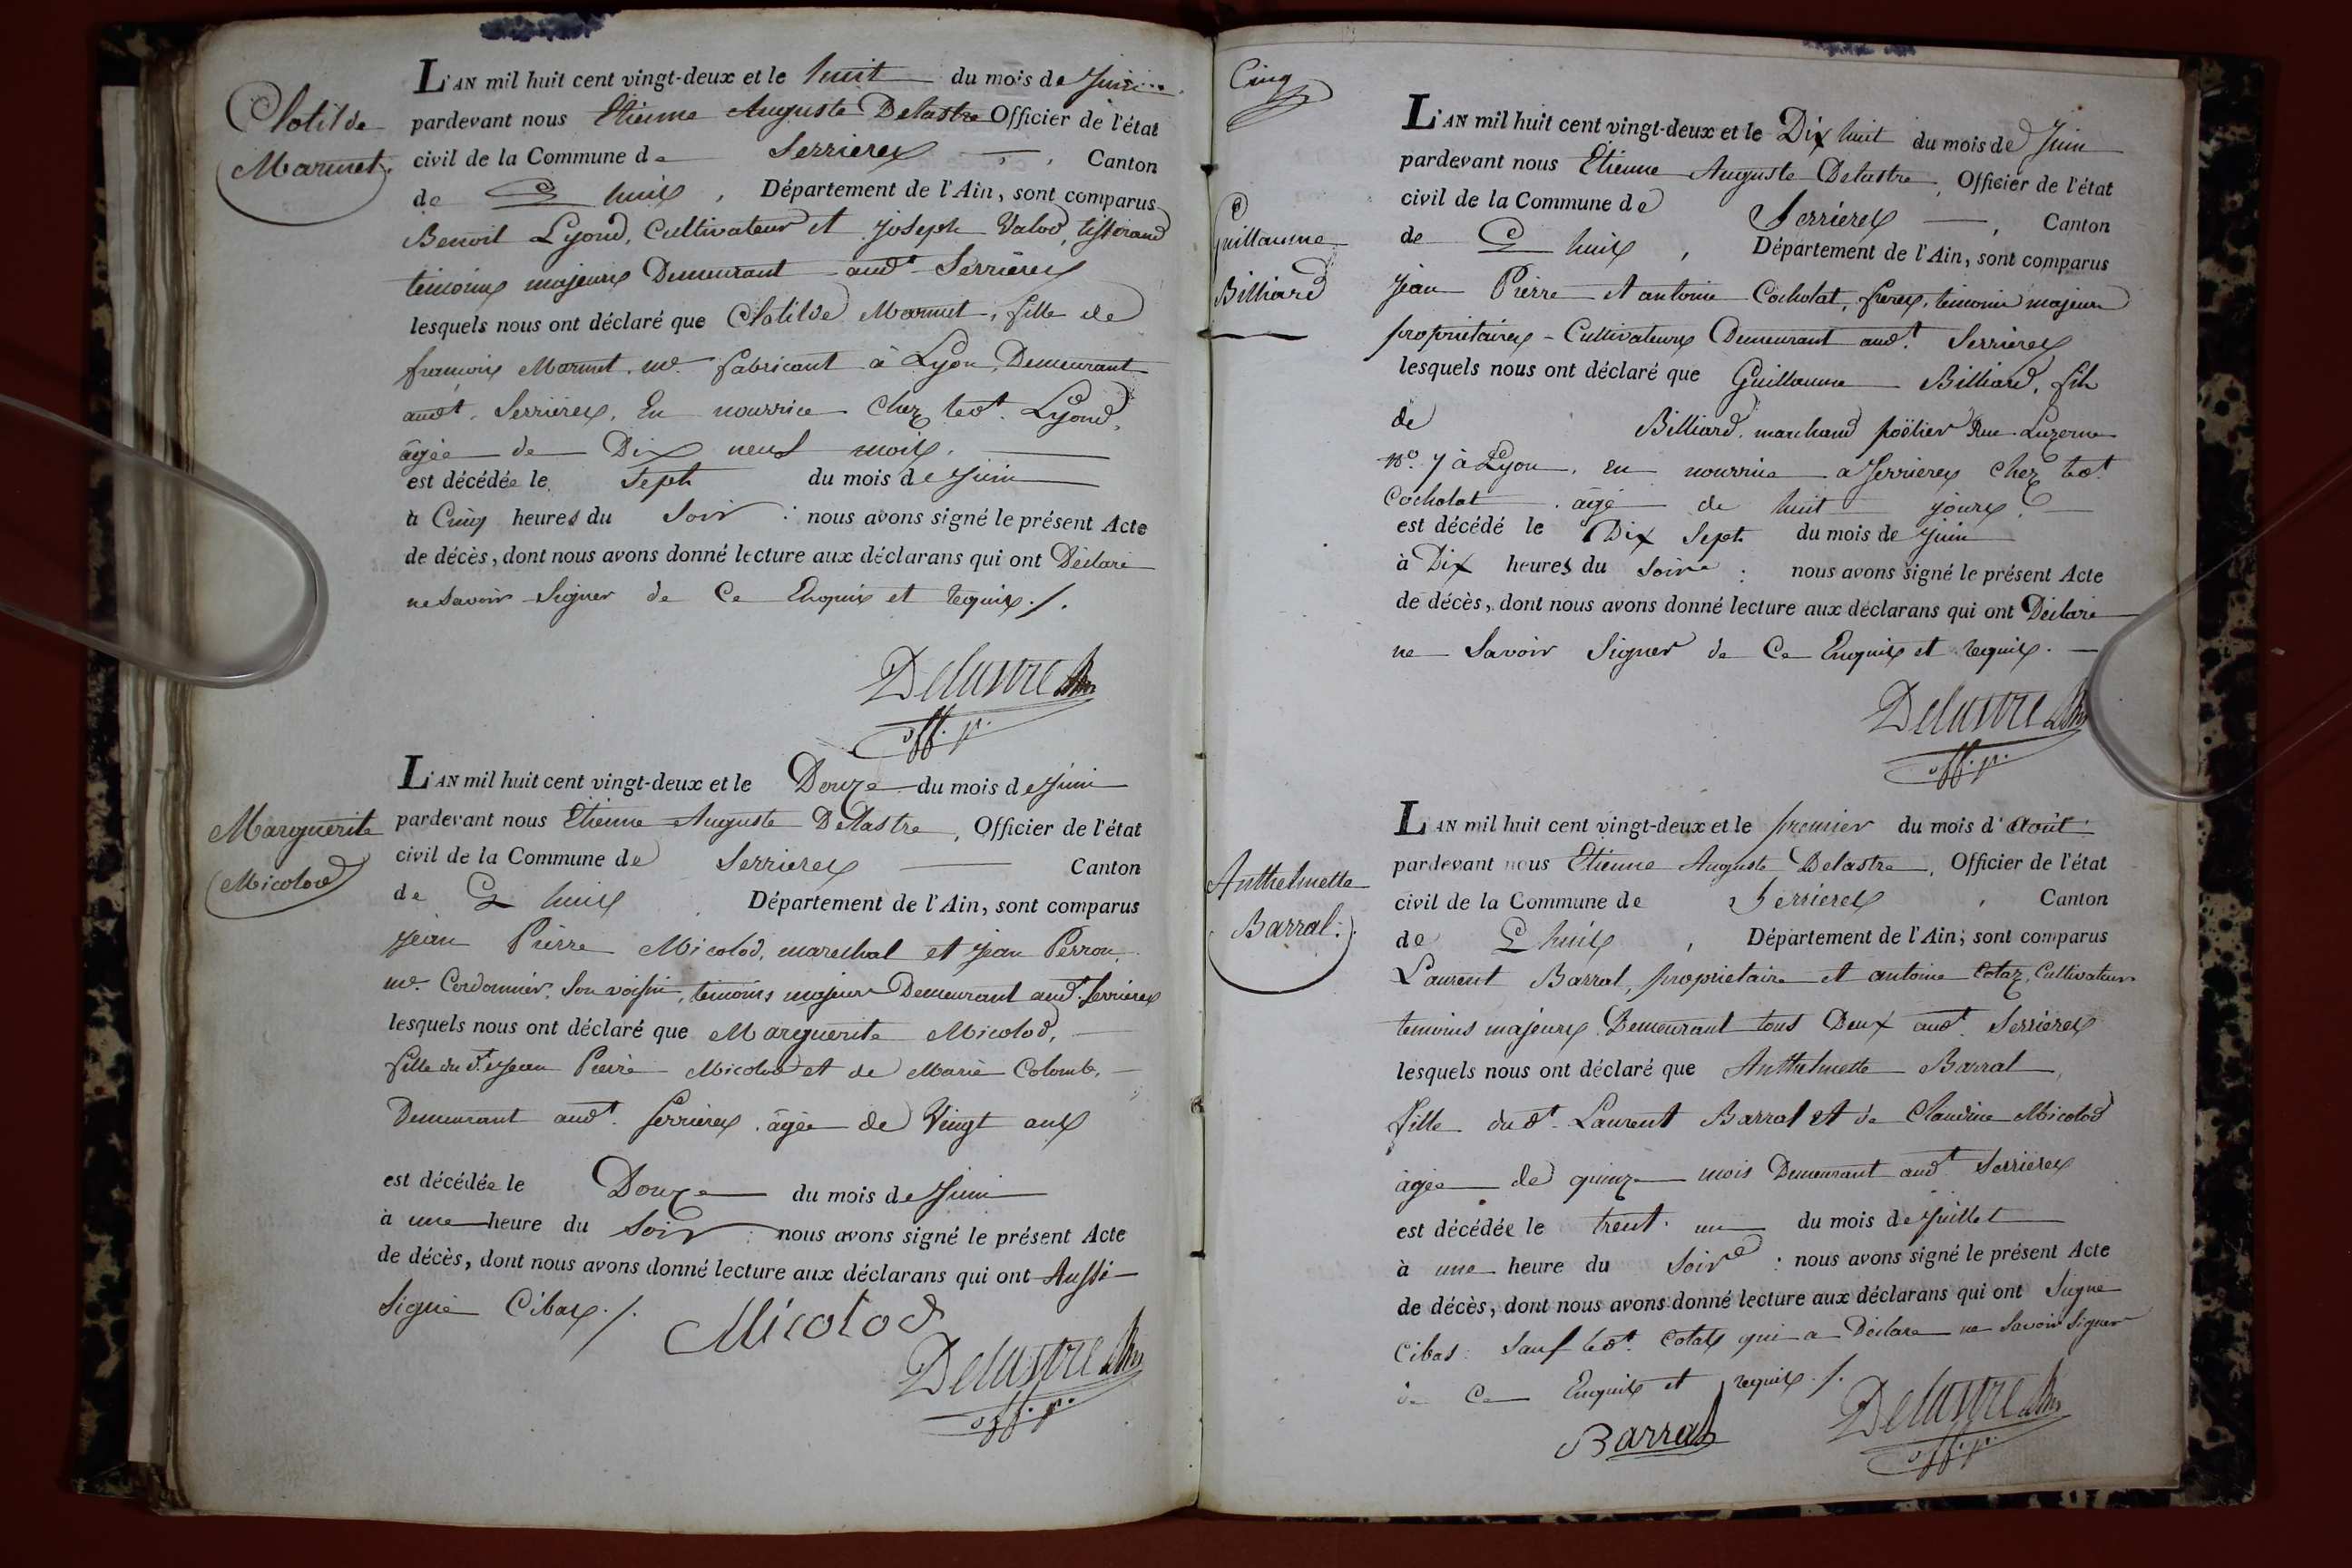 Clotilde
Marmet.
L'AN mil huit cent vingt-deux et le huit du mois de Juin
pardevant nous Etienne Auguste Delastre Officier de l'état
civil de la Commune de Serrieres, Canton
de huis, Département de l'Ain, sont comparus
Benoit Lyond, Cultivateur et Joseph Valod, tisserand
temoins majeurs Demeurant audt Serrières
lesquels nous ont déclaré que Clotilde Marmet, fille de
françois Marmet, md. fabricant à Lyon, Demeurant
audt. Serrières, En nourrice Chez ledt. Lyond,
âgée de Dix neuf mois.
est décédée le Sept du mois de Juin
à Cinq heures du Soir : nous avons signé le présent Acte
de décès, dont nous avons donné lecture aux déclarans qui ont Déclaré
ne Savoir Signer de Ce Enquis et requis ./.
Delastre
off. p.
Marguerite
Micolod
L'AN mil huit cent vingt-deux et le Douze du mois de Juin
pardevant nous Etienne Auguste Delastre, Officier de l'état
civil de la Commune de Serrieres Canton
de huis Département de l'Ain, sont comparus
Jean Pierre Micolod, marechal et Jean Perron,
md. Cordonnier, Son voisin, temoins majeurs Demeurant audt. Serrieres
lesquels nous ont déclaré que Marguerite Micolod,
fille du dt. Jean Pierre Micolod et de Marie Colomb,
Demeurant audt. Serrieres, âgée de Vingt ans
est décédée le Douze du mois de Juin
à une heure du Soir : nous avons signé le présent Acte
de décès, dont nous avons donné lecture aux déclarans qui ont Aussi
Signé Cibas ./.
Micolod
Delastre
off. p.
Cinq
Guillaume
Billiard
L'AN mil huit cent vingt-deux et le Dix huit du mois de Juin
pardevant nous Etienne Auguste Delastre, Officier de l'état
civil de la Commune de Serrieres, Canton
de huis, Département de l'Ain, sont comparus
Jean Pierre et antoine Cocholat, freres, temoins majeurs
propriétaires - Cultivateurs Demeurant audt. Serrieres
lesquels nous ont déclaré que Guillaume Billiard, fils
de Billiard, marchand poëlier Rue Luzerne
No. 7 à Lyon, en nourrice a Serrieres chez ledt.
Cocholat, âgé de huit jours.
est décédé le Dix Sept du mois de Juin
à Dix heures du Soir : nous avons signé le présent Acte
de décès, dont nous avons donné lecture aux déclarans qui ont Déclaré
ne Savoir Signer de Ce Enquis et requis.
Delastre
off. p.
Anthelmette
Barral.
L'AN mil huit cent vingt-deux et le premier du mois d'Août
pardevant nous Etienne Auguste Delastre, Officier de l'état
civil de la Commune de Serrieres, Canton
de huis, Département de l'Ain, sont comparus
Laurent Barral, proprietaire et antoine Cotaz, Cultivateurs
temoins majeurs Demeurant tous Deux audt. Serrieres
lesquels nous ont déclaré que Anthelmette Barral,
fille dudt. Laurent Barral et de Claudine Micolod
âgée de quinze mois Demeurant audt Serrieres
est décédée le trent-un du mois de Juillet
à une heure du Soir : nous avons signé le présent Acte
de décès, dont nous avons donné lecture aux déclarans qui ont Signe
Cibas Sauf ledt. Cotaz qui a Déclare ne Savoir Signer
de Ce Enquis et requis ./.
Barral
Delastre
off. p.